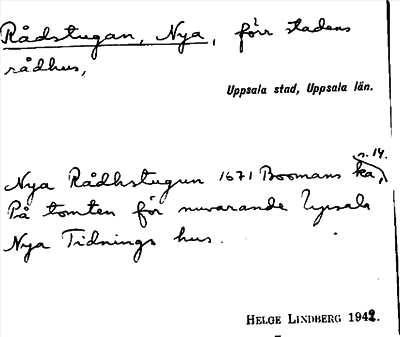 Rådstugan, Nya, förr stadens
rådhus,
Uppsala stad, Uppsala län.
s. 14.
Nya Rådhstugun 1671 Boomans ka,
På tomten för nuvarande Upsala
Nya Tidnings hus.
HELGE LINDBERG 1942.